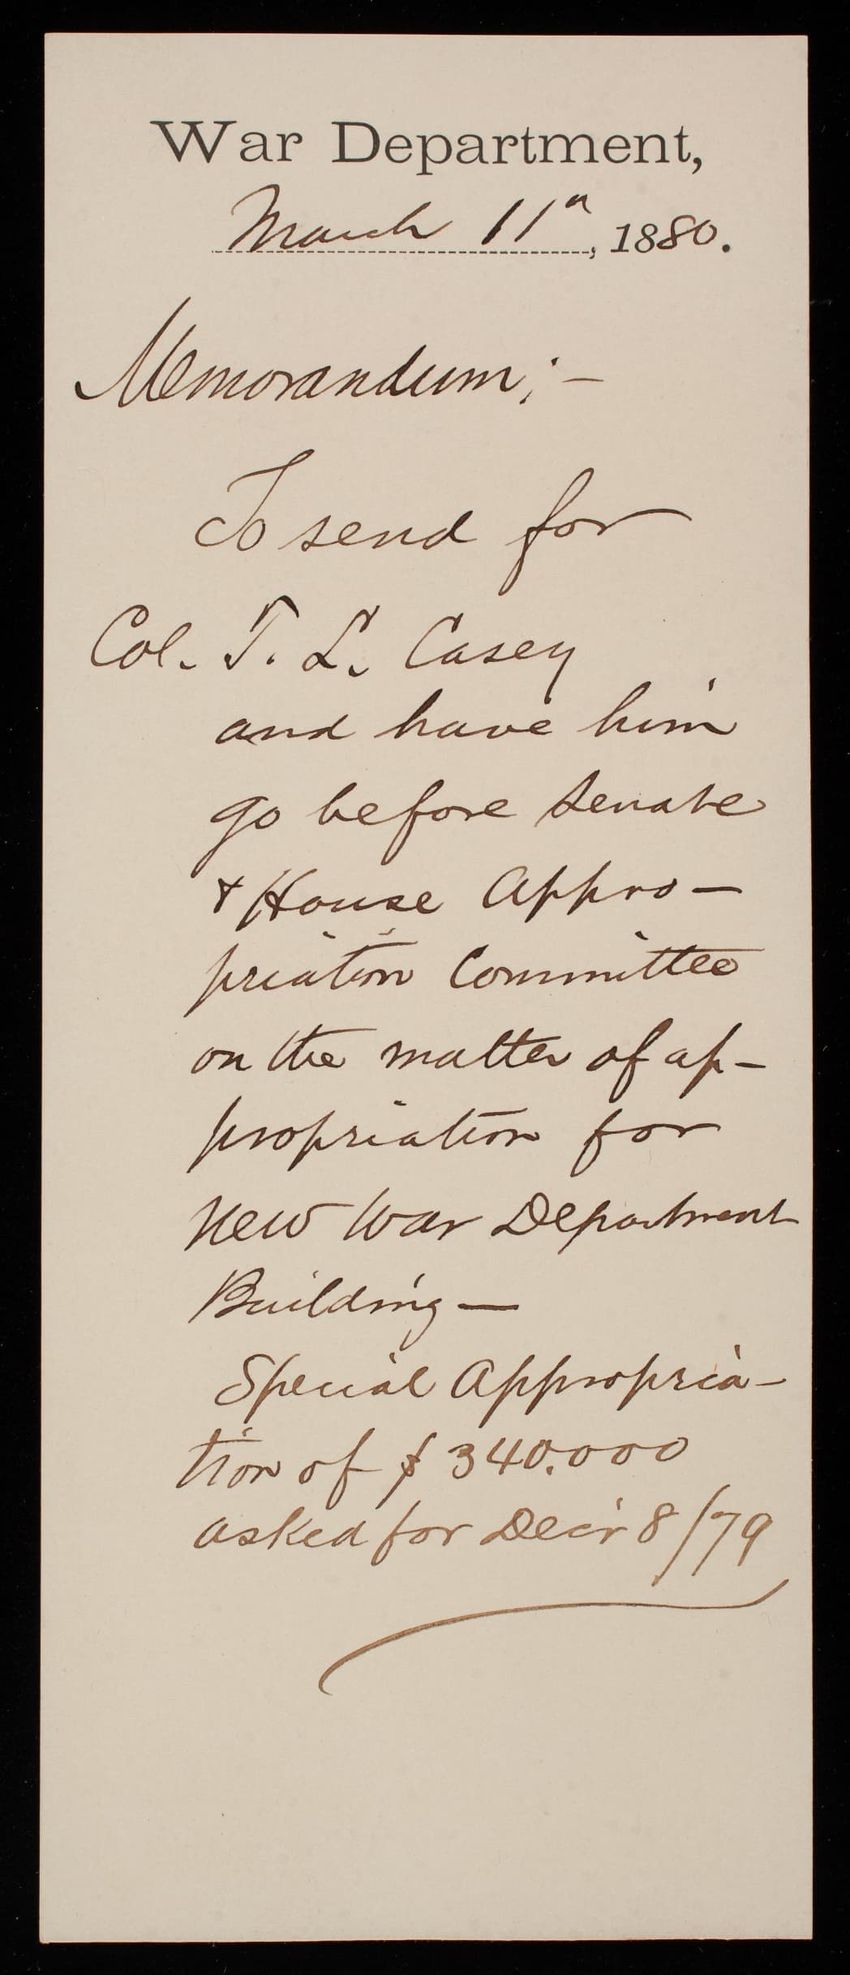 War Department,
March 11th, 1880.
Memorandum;-
To send for
Col. T. L. Casey
and have him
go before Senate
& House Appro-
priation Committee
on the matter of ap-
propriation for
New War Department
Building-
Special Appropria-
tion of $340.000
asked for Dec'r 8/79